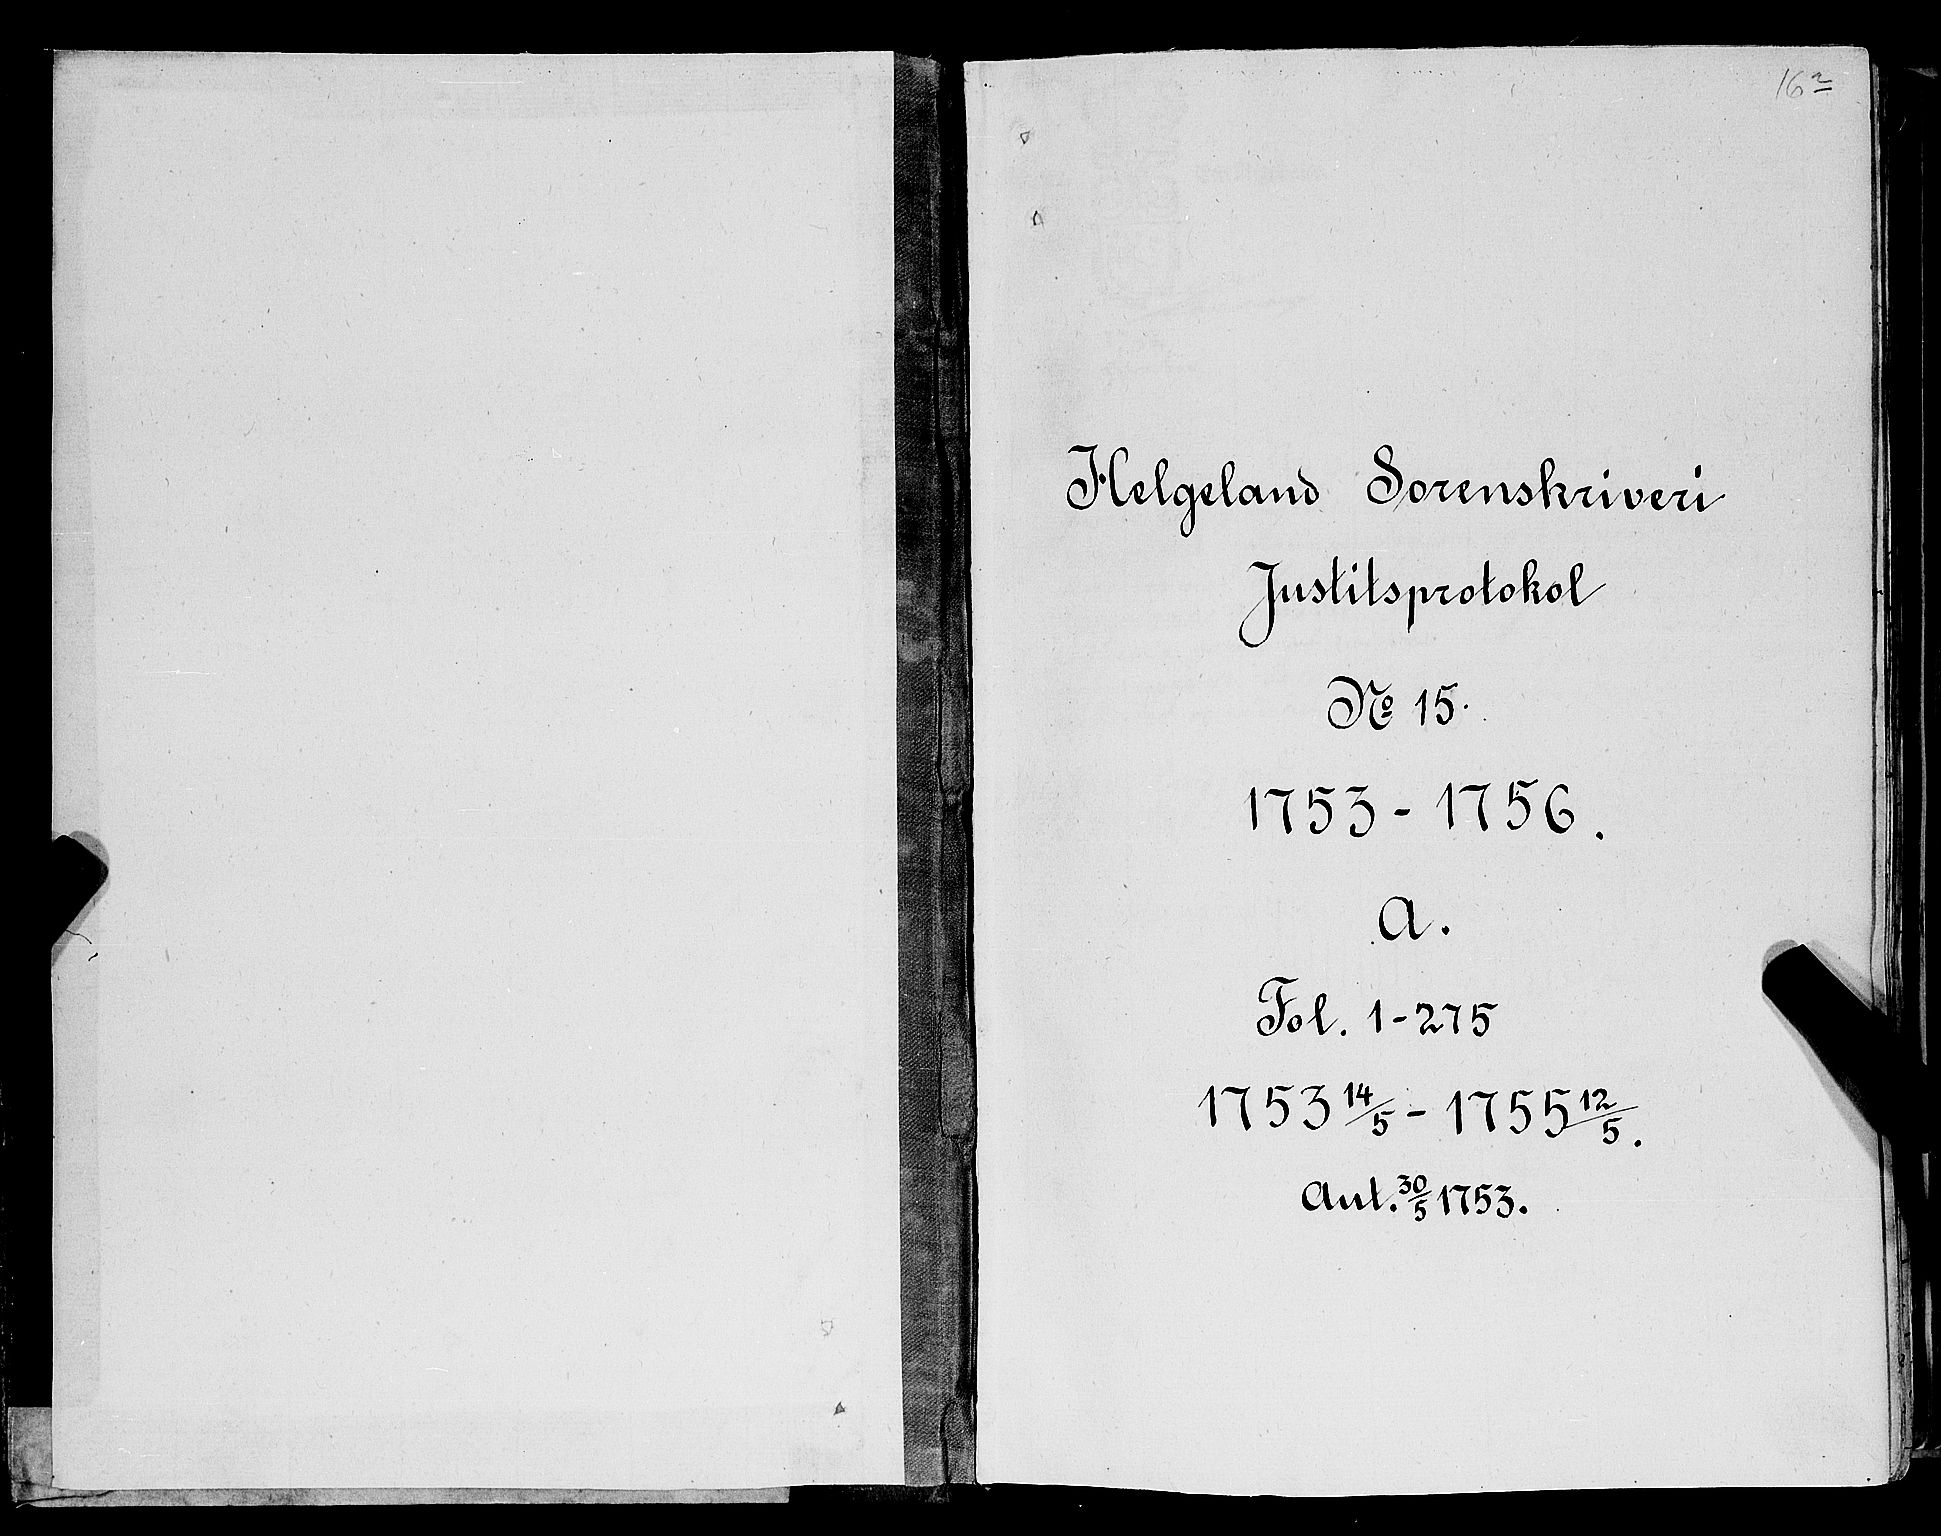 16 2
Helgeland Sorenskriveri
Justitsprotokol
No 15.
1753 - 1756.
A.
Fol. 1-275
1753 14/5 - 1755 12/5.
Aut. 30/5 1753.